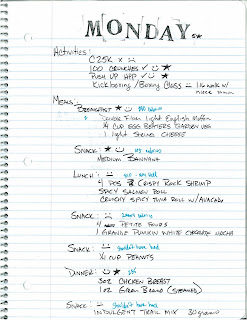 MONDAY
Activities:
C25K X ☹
100 CRUNCHES ✓ ☺ ★
PUSH UP APP ✓ ☺ ★
Kickboxing / Boxing Class
Meals:
BREAKFAST ★ ☺
Double Fiber Light English Muffin
1/4 CUP EGG BEATERS GARDEN VEG
1 Light String CHEESE
SNACK: ★ ☺
MEDIUM BANANA
LUNCH: ☺
4 PCS CRISPY ROCK SHRIMP
SPICY SALMON ROLL
CRUNCHY SPICY TUNA ROLL W/ AVACADO
SNACK: ☹
4 PETITE FOURS
1 GRANDE PUMPKIN WHITE CHOCOLATE MOCHA
SNACK: ☹ Shouldn't have had
1/4 CUP PEANUTS
DINNER: ☺ ★
3oz CHICKEN BREAST
1oz Green Beans (STEAMED)
SNACK: ☹ Shouldn't have had
INDULGENT TRAIL MIX 30 grams